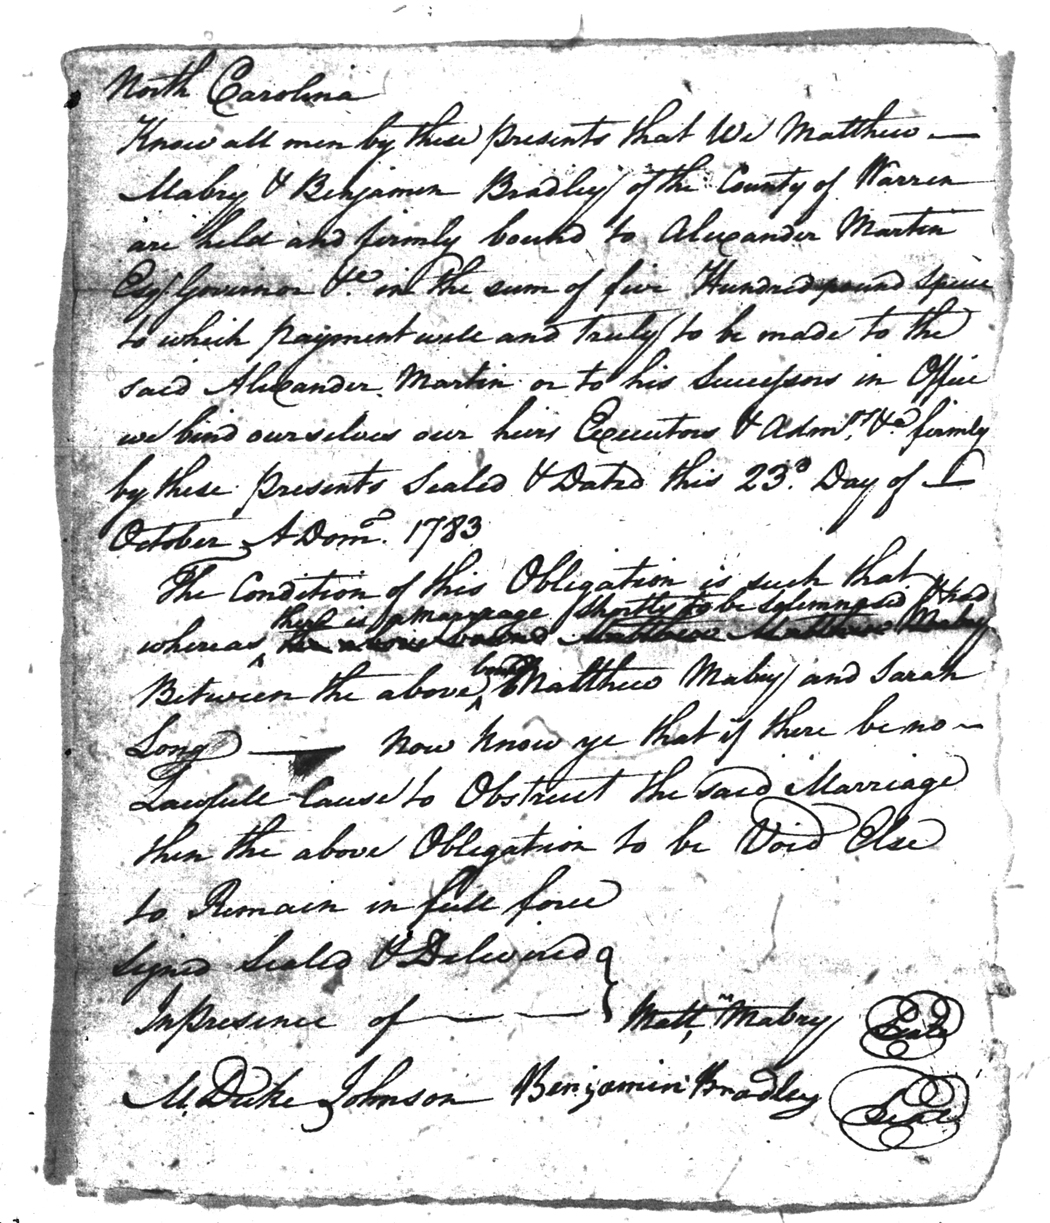 North Carolina
Know all men by these presents that We Matthew —
Mabry & Benjamin Bradley of the County of Warren
are held and firmly bound to Alexander Martin
Esqr Governor &c. in the sum of five Hundred pound Specie
to which payment well and truly to be made to the
said Alexander Martin or to his Successors in Office
we bind ourselves our heirs Executors & Admrs. &c. firmly
by these presents Sealed & Dated this 23d. Day of —
October A Domo. 1783
The Condition of this Obligation is such that
there is a marriage shortly to be solemnized & had
whereas the above bound Matthew Matthew Mabry
Between the above bound Matthew Mabry and Sarah
Long — Now know ye that if there be no —
Lawfull Cause to Obstruct the said Marriage
then the above Obligation to be Void Else
to Remain in full force
Signed Sealed & Delivered
In presence of — — Mattw. Mabry Seal
M. Duke Johnson Benjamin Bradley Seal